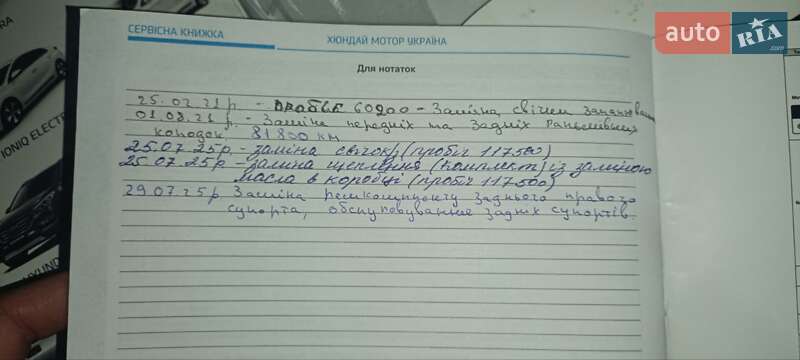 СЕРВІСНА КНИЖКА
ХЮНДАЙ МОТОР УКРАЇНА
auto RIA.com
Для нотаток
25.02.21р. - пробег 60200 - Заміна свічек запалювання
01.08.21р. - Заміна передніх та задніх
колодок. 81800 км
25.07.25р - заміна свічок (пробіг 117500)
25.07.25р - заміна щеплення (комплект) із заміною
масла в коробці (пробіг 117500)
29.07.25р Заміна ремкомплекту заднього правого
супорта, обслуговування задніх супортів.
IONIQ ELECTR
HYUNDAI